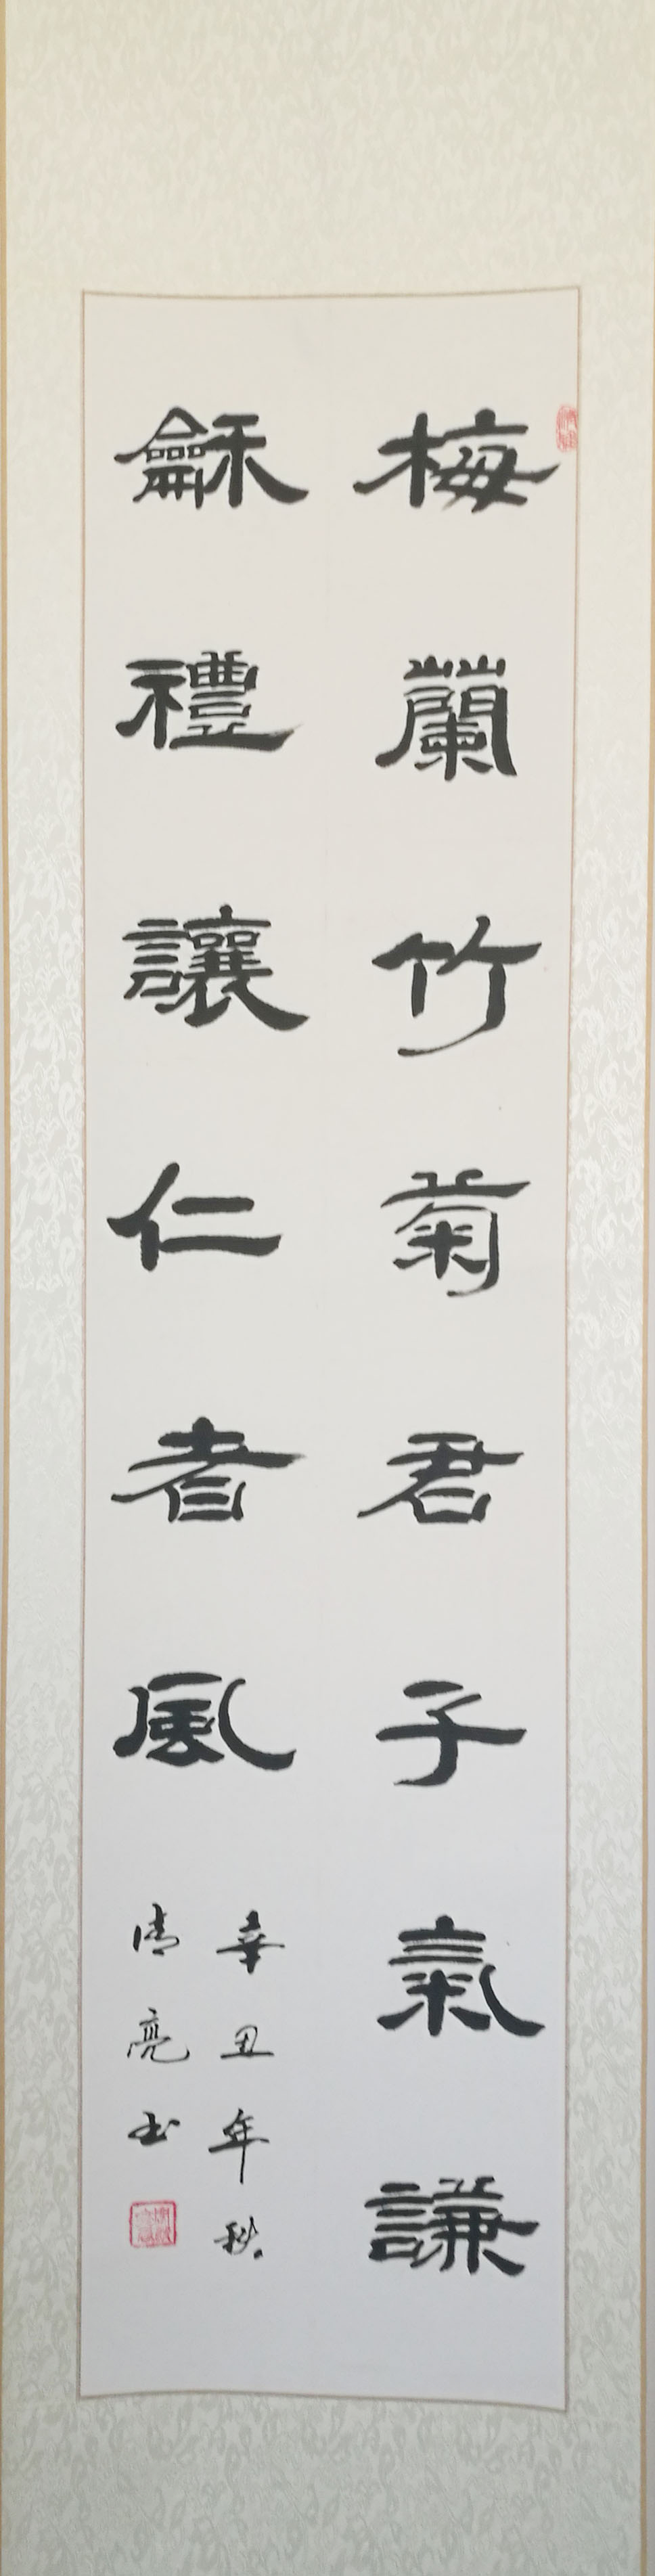 梅蘭竹菊君子氣謙
龢禮讓仁者風
辛丑年秋
清亮书